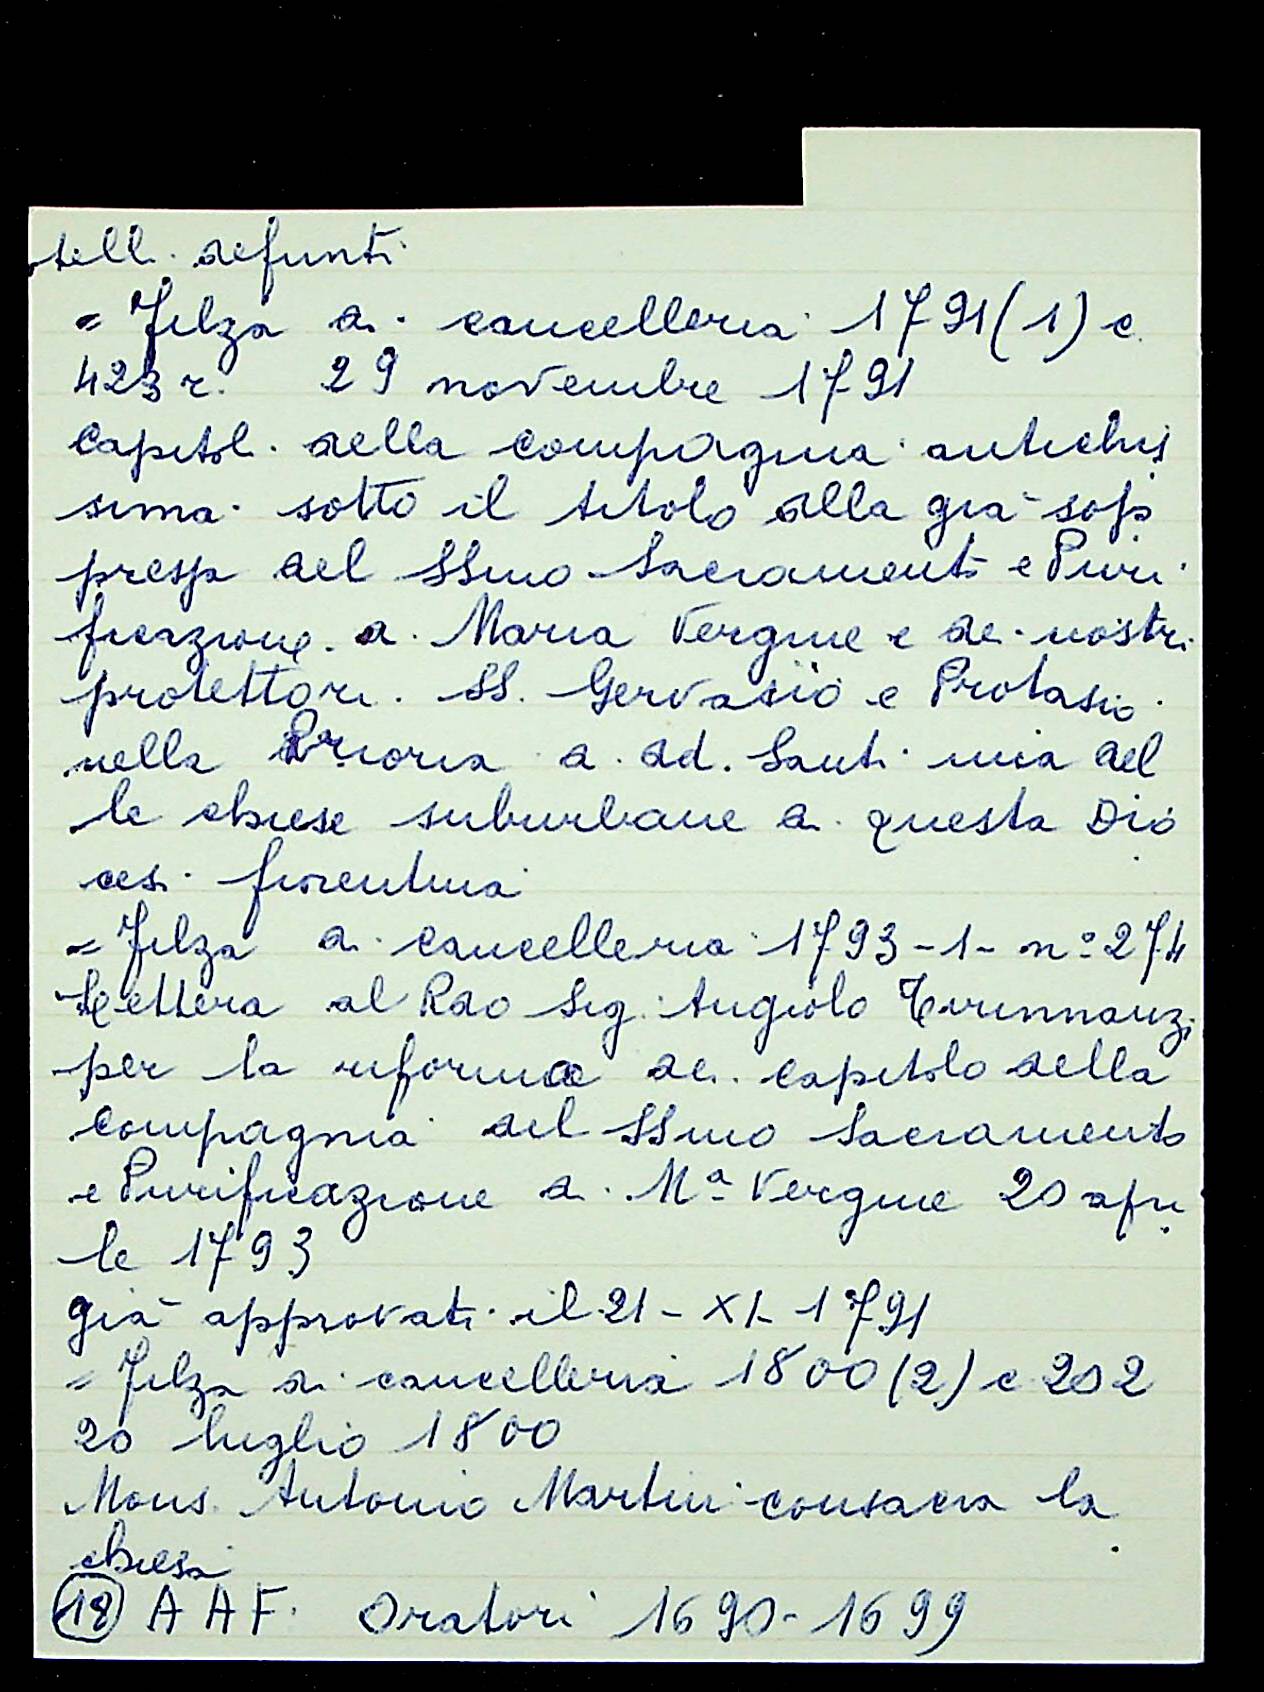 telli defunti
= Filza di cancelleria 1791(1) c.
423 r. 29 novembre 1791
Capitoli della compagnia antichis
sima sotto il titolo alla già sop
pressa del SSmo Sacramento e Puri
ficazione di Maria Vergine e dei nostri
protettori SS. Gervasio e Protasio
nella Prioria di ad. Santi una del
le chiese suburbane di questa Dio
cesi fiorentina
= Filza di cancelleria 1793-1- n° 274
Lettera al Rdo Sig. Angiolo Tirinnanzi
per la riforma dei capitolo della
compagnia del SSmo Sacramento
e Purificazione di Mª Vergine 20 apri
le 1793
già approvati il 21-XI-1791
= Filza di cancelleria 1800(2) c 202
20 luglio 1800
Mons. Antonio Martini consacra la
chiesa
(18) A A F. Oratori 1690-1699